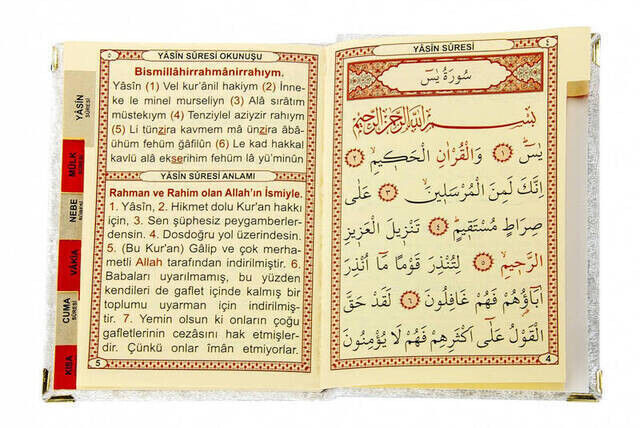 YÂSİN SÛRESİ
MÜLK SÛRESİ
NEBE SÛRESİ
VÂKIA
CUMA SÛRESİ
KISA
YÂSİN SÛRESİ OKUNUŞU
٥
Bismillâhirrahmânirrahıym.
Yâsîn (1) Vel kur'ânil hakiym (2) İnne-
ke le minel murseliyn (3) Alâ sırâtım
müstekıym (4) Tenziylel aziyzir rahıym
(5) Li tünzira kavmem mâ ünzira âbâ-
ühüm fehüm ğâfilûn (6) Le kad hakkal
kavlü alâ ekserihim fehüm lâ yü'minûn
YÂSİN SÛRESİ ANLAMI
Rahman ve Rahim olan Allah'ın İsmiyle.
1. Yâsîn, 2. Hikmet dolu Kur'an hakkı
için, 3. Sen şüphesiz peygamberler-
densin. 4. Dosdoğru yol üzerindesin.
5. (Bu Kur'an) Gâlip ve çok merha-
metli Allah tarafından indirilmiştir. 6.
Babaları uyarılmamış, bu yüzden
kendileri de gaflet içinde kalmış bir
toplumu uyarman için indirilmiş-
tir. 7. Yemin olsun ki onların çoğu
gafletlerinin cezâsını hak etmişler-
dir. Çünkü onlar îmân etmiyorlar.
5
YÂSİN SÛRESİ
٤
سُورَةُ يٰسٓ
بِسْمِ اللّٰهِ الرَّحْمٰنِ الرَّحِيمِ
يٰسٓ ﴿١﴾ وَالْقُرْاٰنِ الْحَكِيمِ ﴿٢﴾
اِنَّكَ لَمِنَ الْمُرْسَلِينَ ﴿٣﴾ عَلٰى
صِرَاطٍ مُسْتَقِيمٍ ﴿٤﴾ تَنْزِيلَ الْعَزِيزِ
الرَّحِيمِ ﴿٥﴾ لِتُنْذِرَ قَوْمًا مَٓا اُنْذِرَ
اٰبَٓاؤُ۬هُمْ فَهُمْ غَافِلُونَ ﴿٦﴾ لَقَدْ حَقَّ
الْقَوْلُ عَلٰٓى اَكْثَرِهِمْ فَهُمْ لَا يُؤْمِنُونَ
4